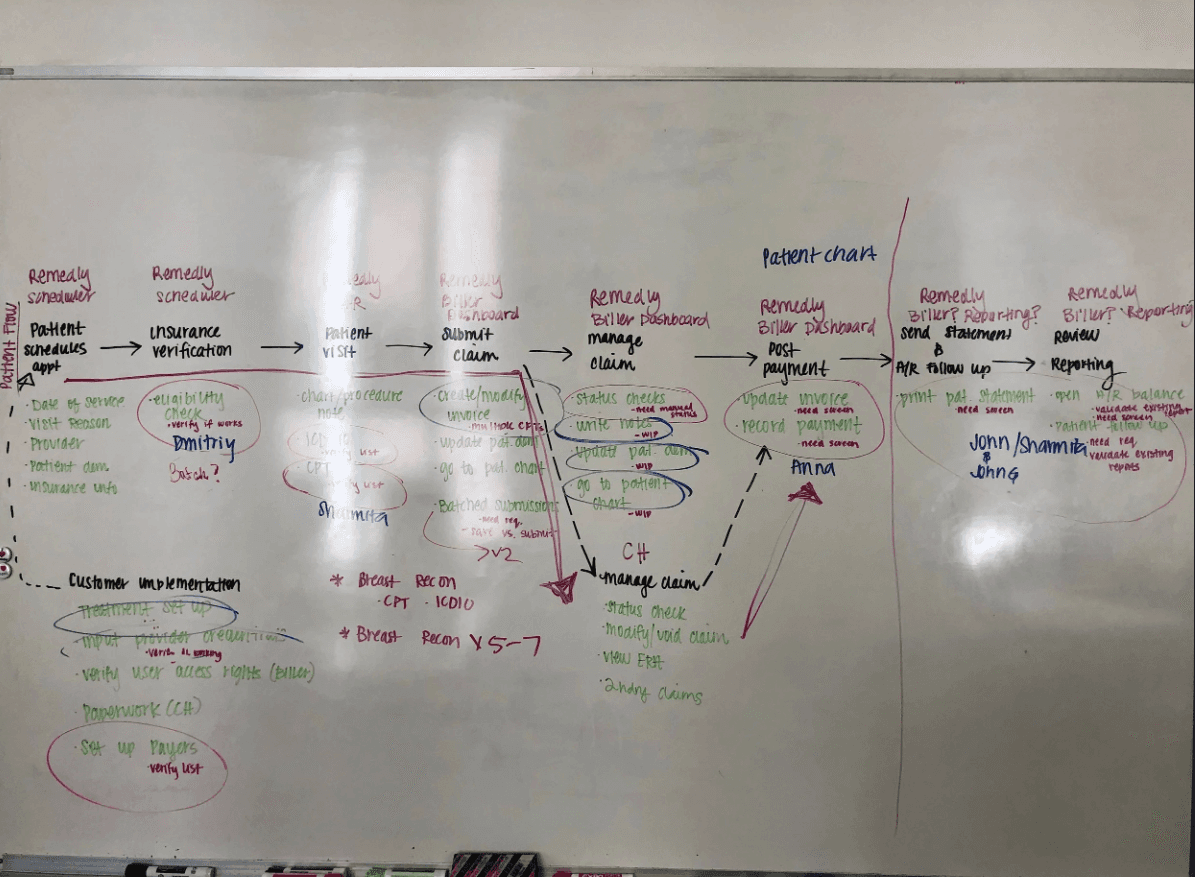 Patient Flow
Remedly
scheduler
Patient
schedules
appt
· Date of service
· Visit Reason
· Provider
· Patient dem.
· Insurance info
Remedly
scheduler
insurance
verification
· eligibility
check
· verify if works
Dmitriy
Batch?
Patient
visit
chart/procedure
note
verify list
· CPT
verify list
Sharmita
Remedly
Biller
Dashboard
Submit
claim
· create/modify
invoice
· multiple CPTs
· update pat. dem
· go to pat. chart
· Batched submissions
- need req.
- save vs. submit
>v2
Remedly
Biller Dashboard
manage
claim
· status checks
- need manual
status
· write notes
- WIP
· update pat. dem
- WIP
· go to patient
chart
- WIP
CH
manage claim
· status check
· modify/void claim
· view ERA
· 2ndry claims
Patient chart
Remedly
Biller Dashboard
Post
payment
· update invoice
· need screen
· record payment
· need screen
Anna
Remedly
Biller? Reporting?
send statement
&
A/R follow up
· print pat. statement
· need screen
John/Sharmita
&
John G
Remedly
Biller? Reporting
Review
Reporting
· open A/R balance
· validate existing
· need screen report
· Patient follow up
· need req
· validate existing
reports
Customer implementation
· Treatment set up
· input provider credentials
· verify is working
· verify user access rights (Biller)
· Paperwork (CH)
· Set up Payers
· verify list
* Breast Recon
· CPT · ICD10
* Breast Recon x5-7